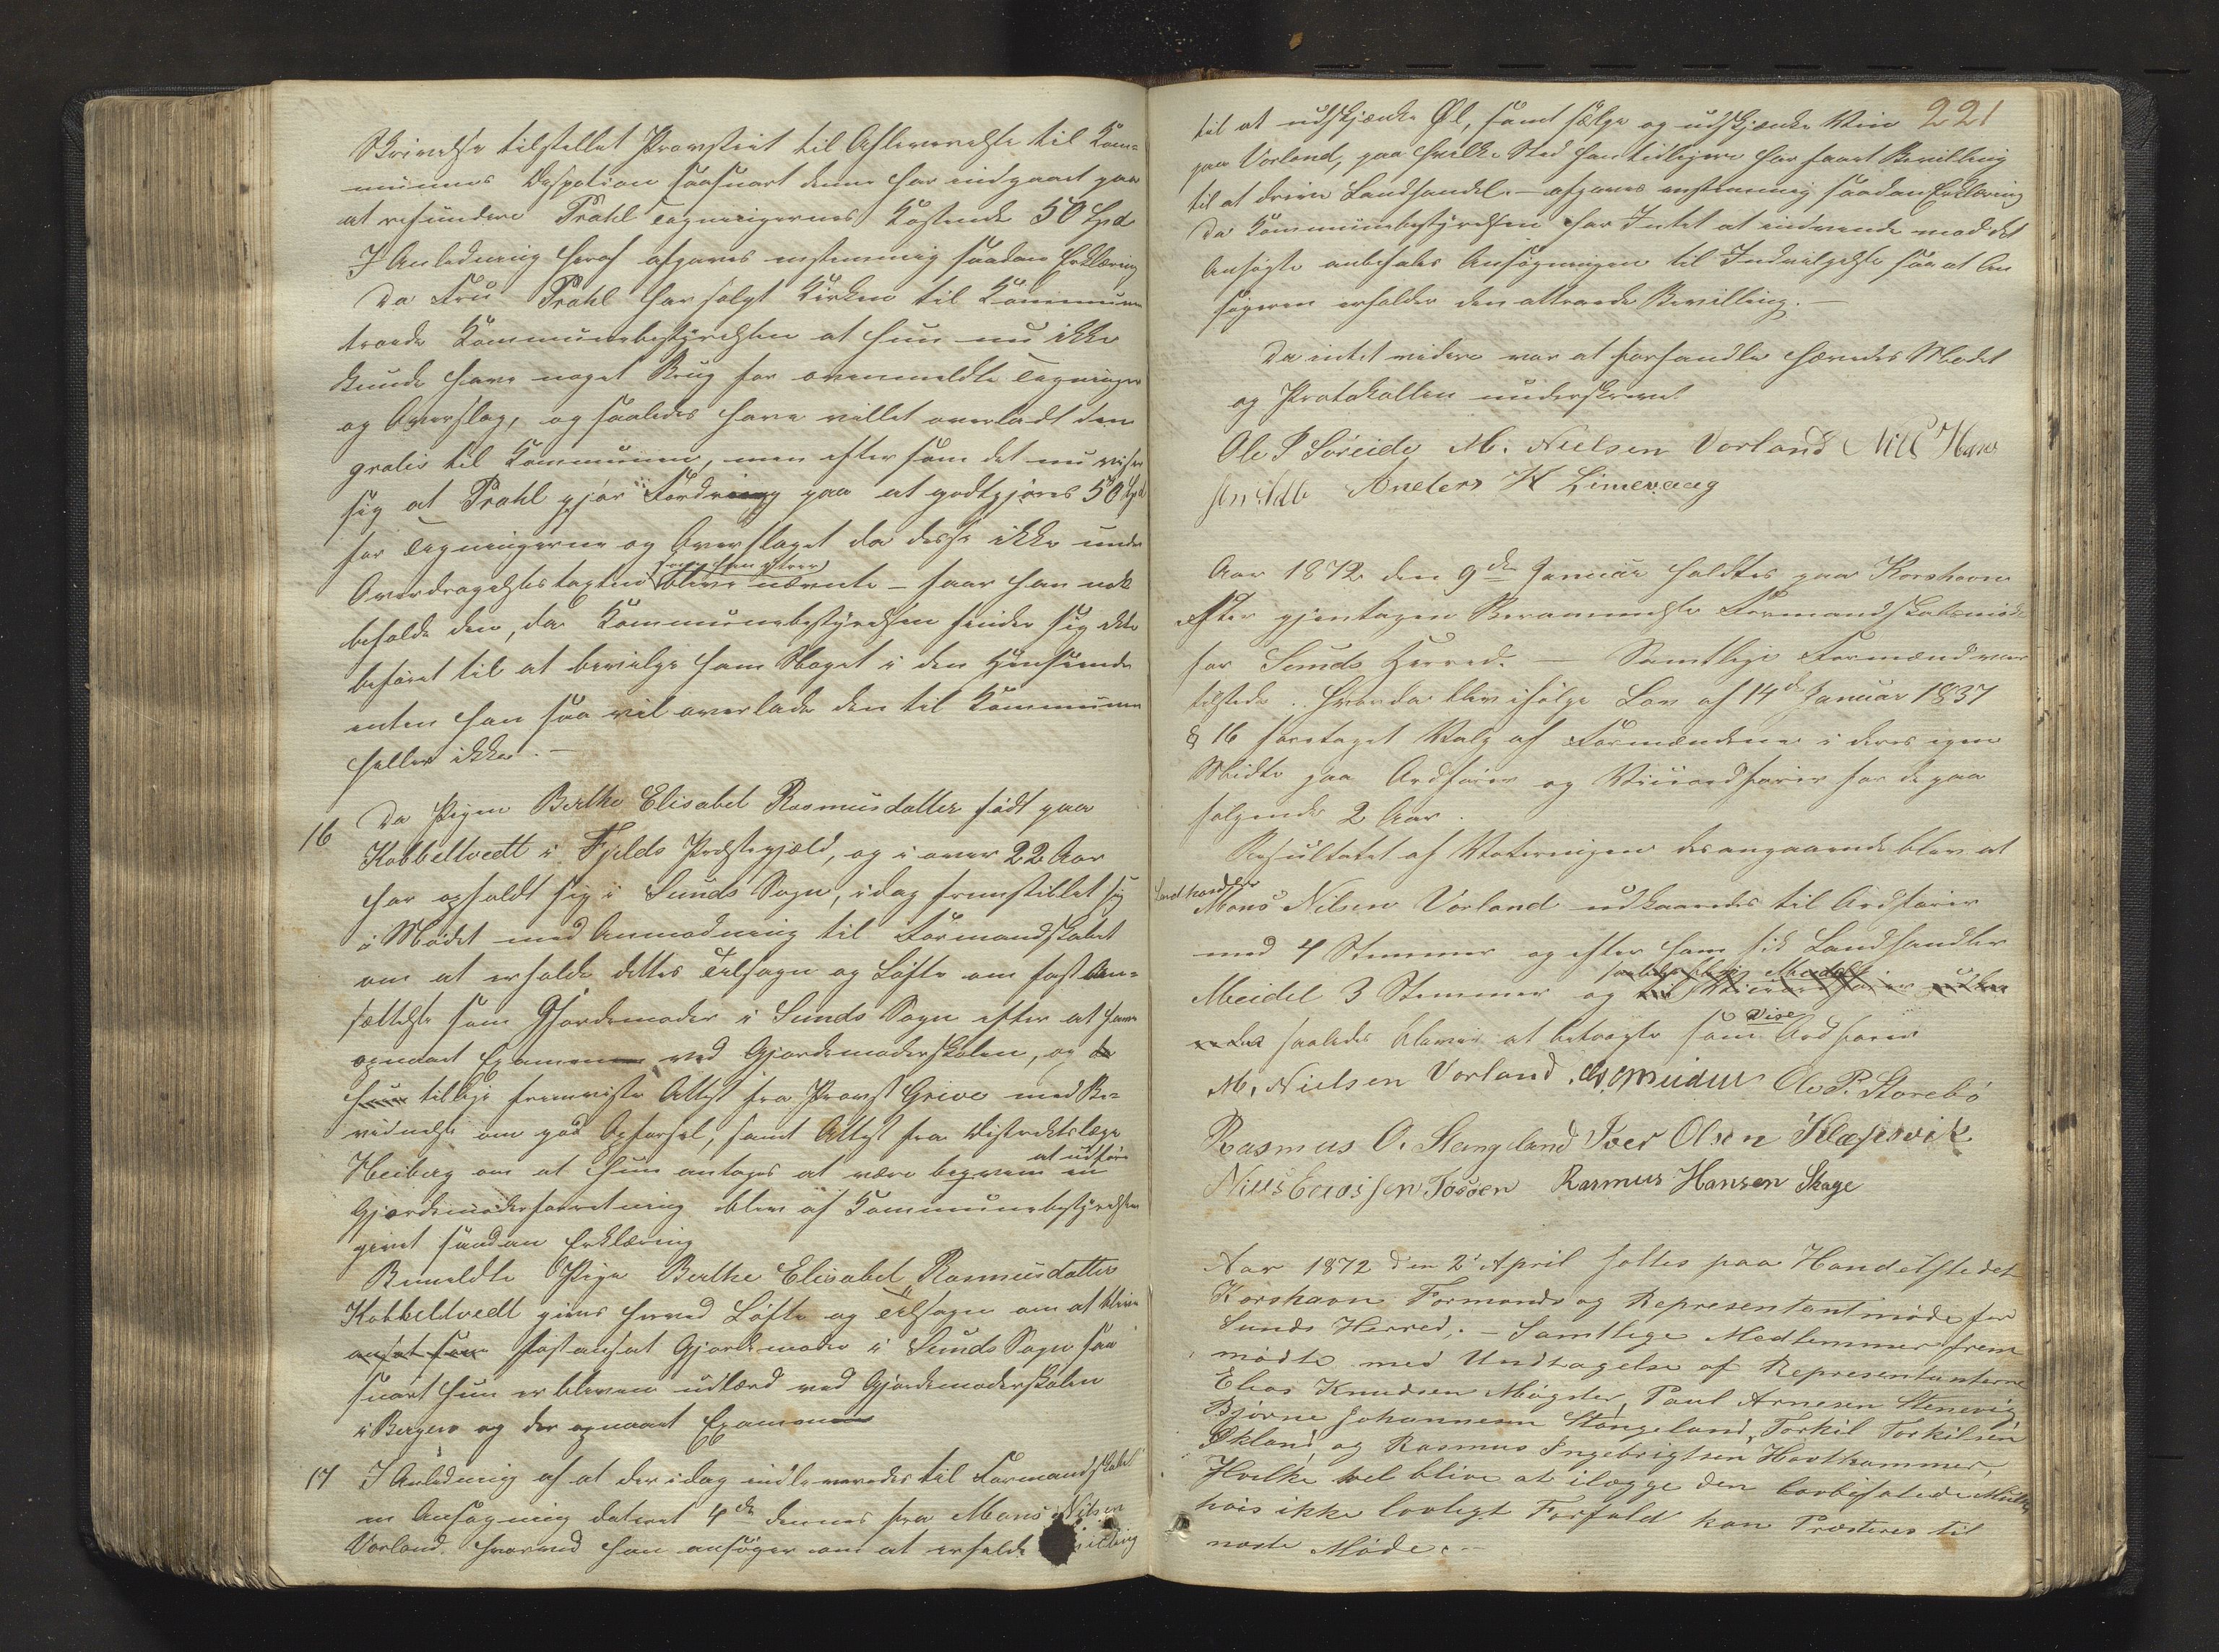 Skrivelse tilstellet Provstiet til Afleverelse til Kom-
munens Disposition saasnart denne har indgaaet paa
at refundere Prahl Tegningernes Kostende 50 Spd
I Anledning heraf afgaves enstemmig saadan Erklæring
Da Fru Prahl har solgt Kirken til Kommunen
troede Kommunebestyrelsen at hun nu ikke
kunde have noget Brug for ovenmeldte Tegninger
og Overslag, og saaledes have villet overladt den
gratis til Kommunen, men eftersom det nu viser
sig at Prahl gjør Fordring paa at godtgjøres 50 Spd
for Tegningerne og Overslaget da disse ikke under
Overdragelsestaxten bleve nævnte – faar han nok
beholde den, da Kommunebestyrelsen finder sig ikke
beføiet til at bevilge ham Noget i den Henseende
enten han saa vil overlade den til Kommunen
heller ikke. –
16 Da Pigen Berthe Elisabet Rasmusdatter født paa
Kobbeltvedt i Fjelds Præstegjæld, og i over 22 Aar
har opholdt sig i Sunds Sogn, idag fremstillet sig
i Mødet med Anmodning til Formandskabet
om at erholde dettes Tilsagn og Løfte om fast An-
sættelse som Gjordemoder i Sunds Sogn efter at have
opnaaet Examen ved Gjordemoderskolen, og da
hun tillige fremviste Attest fra Provst Grieve med Be-
vidnelse om god Opførsel, samt Attest fra Distriktslæge
Heiberg om at hun antages at være beqvem at udføre en
Gjordemoderforretning blev af Kommunebestyrelsen
givet saadan Erklæring
Bemeldte Pige Berthe Elisabet Rasmusdatter
Kobbeltvedt gives herved Løfte og Tilsagn om at blive
ansat som fastansat Gjordemoder i Sunds Sogn saa
snart hun er bleven udlærd ved Gjordemoderskolen
i Bergen og der opnaaet Examen
17 I Anledning af at der idag indleveredes til Formandskabet
en Ansøgning dateret 4de dennes fra Mons Nilsen
Vorland hvorved han ansøger om at erholde Bevilling
221
til at udskjænke Øl, samt sælge og udskjænke Viin
paa Vorland, paa hvilke Sted han tidligere har faaet Bevilling
til at drive Landhandel – afgaves enstemmig saadan Erklæring
Da Kommunebestyrelsen har Intet at indvende mod det
Ansøgte anbefales Ansøgningen til Indvilgelse saa at An
søgeren erholder den attraaede Bevilling. –
Da intet videre var at forhandle hævedes Mødet
og Protokollen underskrevet
Ole P Söreide M. Nielsen Vorland Nils Han
sen Anders H Limevaag
Aar 1872 den 9de Januar holdtes paa Korshavn
efter gjentagen Berammelse Formandskabsmøde
for Sunds Herred. – Samtlige Formænd var
tilstede. Hvorda blev ifølge Lov af 14de Januar 1837
§ 16 foretaget Valg af Formændene i deres egen
Midte paa Ordfører og Viceordfører for de paa
følgende 2 Aar.
Resultatet af Voteringen desangaaende blev at
Landhandler Mons Nilsen Vorland udkaaredes til Ordfører
med 4 Stemmer og efter ham fik Landhandler
Meidel 3 Stemmer og
saaledes bliver at betragte som Vise Ordfører
M. Nielsen Vorland. Meidell Ole P. Storebö
Rasmus O. Stangeland Iver Olsen Klæpsvik
Niels Toösen Rasmus Hansen Skage
Aar 1872 den 2' April holtes paa Handelstedet
Korshavn Formands og Representantmöde for
Sunds Herred; – Samtlige Medlemmer frem
mödte med Undtagelse af Representanterne
Elias Knudsen Mögster, Paul Arnesen Stenevig
Bjørne Johannesen Stangeland, Torkil Torkilsen
Økland og Rasmus Ingebrigtsen Hovthammer,
Hvilke vel blive at ilægge den lovbefalede Mulkt
hvis ikke lovligt Forfald kan Præsteres til
næste Møde. –